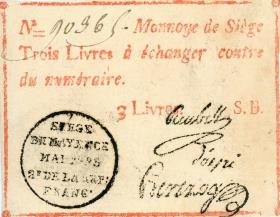 No 10365 - Monnoye de Siège
Trois Livres à échanger contre
du numéraire.
3 Livres S.B.
SIEGE
DE MAYENCE
MAI 1793
2e DE LA REP.
FRANCˢᵉ